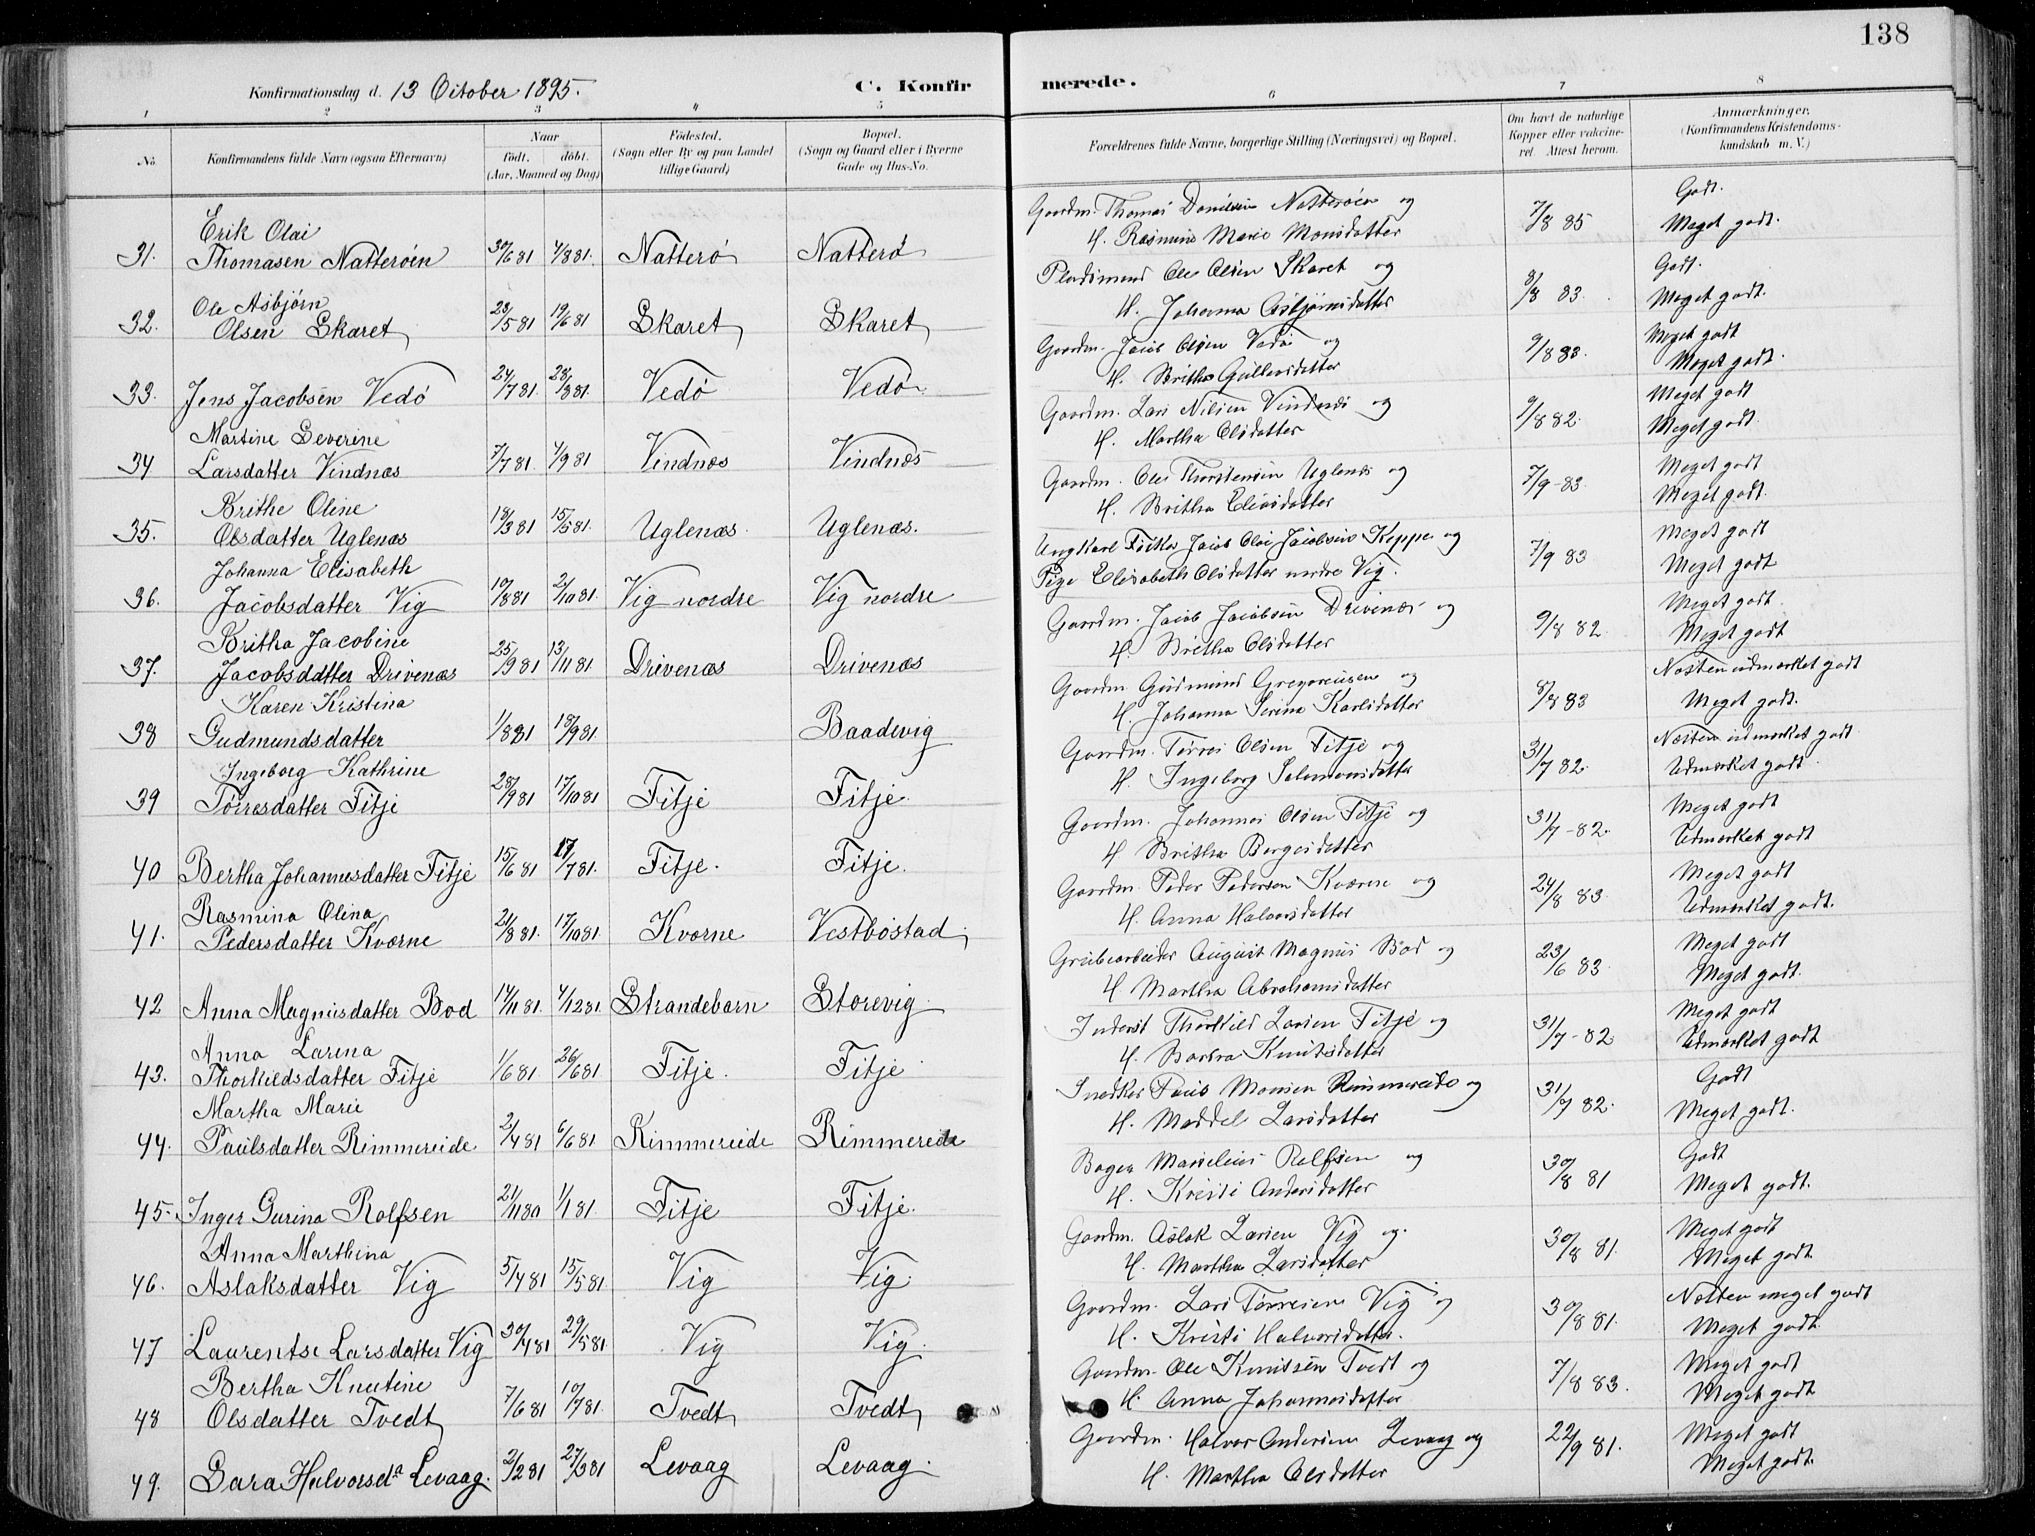 138
Konfirmationsdag d. 13 October 1895.
C. Konfirmerede.
1 2 3 4 5 6 7 8
No.
Konfirmandens fulde Navn (ogsaa Efternavn)
Naar
født. døbt.
(Aar, Maaned og Dag)
Fødested.
(Sogn eller By og paa Landet
tillige Gaard)
Bopæl.
(Sogn og Gaard eller i Byerne
Gade og Hus-No.
Forældrenes fulde Navne, borgerlige Stilling (Næringsvei) og Bopæl.
Om havt de naturlige
Kopper eller vakcine-
ret. Attest herom.
Anmærkninger.
(Konfirmandens Kristendoms-
kundskab m. V.)
Erik Olai
31. Thomasen Natterøen 30/6 81 4/8 81. Natterø Natterø
Gaardm. Thomas Danielsen Natterøen og
H. Rasmine Marie Monsdatter
7/8 85
Godt.
Meget godt.
Ole Asbjørn
32. Olsen Skaret 23/5 81 19/6 81 Skaret Skaret
Pladsmand Ole Olsen Skaret og
H. Johanna Asbjørnsdatter
8/8 83.
Godt.
Meget godt.
33. Jens Jacobsen Vedø 24/7 81 28/8 81. Vedø Vedø
Gaardm. Jacob Olsen Vedø og
H. Britha Gullersdatter
9/8 83.
Meget godt
Meget godt.
Martine Severine
34 Larsdatter Vindnæs 7/7 81. 4/9 81 Vindnæs Vindnæs
Gaardm. Lars Nilsen Vindnæs og
H. Martha Olsdatter
9/8 82.
Meget godt
Meget godt.
Brithe Oline
35. Olsdatter Uglenæs 18/3 81 15/5 81. Uglenæs. Uglenæs.
Gaardm. Ole Thorstensen Uglenæs og
H. Britha Eliasdatter
7/9-83.
Meget godt
Meget godt.
Johanna Elisabeth
36. Jacobsdatter Vig 10/8 81 2/10 81. Vig nordre Vig nordre
Ungkarl Fisker Jacob Olai Jacobsen Keppe og
Pige Elisabeth Olsdatter nordre Vig.
7/9 83
Meget godt
Meget godt
Britha Jacobine
37. Jacobsdatter Drivenæs 25/9 81 13/11 81 Drivenæs Drivenæs
Gaardm. Jacob Jacobsen Drivenæs og
H. Britha Olsdatter
9/8 82.
Meget godt
Meget godt
Karen Kristina
38 Gudmundsdatter 1/8 81 18/9 81 Baadevig
Gaardm Gudmund Gregoreusen og
H. Johanna Serina Karlsdatter
8/8 83
Næsten udmærket godt
Meget godt.
Ingeborg Kathrine
39 Tørresdatter Fitje 28/9 81 17/10 81 Fitje Fitje.
Gaardm. Tørres Olsen Fitje og
H. Ingeborg Salomonsdatter
31/7 82.
Næsten udmærket godt
Udmærket godt.
40 Bertha Johannesdatter Fitje 15/6 81 17/7 81. Fitje. Fitje.
Gaardm. Johannes Olsen Fitje og
H Britha Børgesdatter
31/7-82.
Meget godt
Udmærket godt
Rasmina Olina
41. Pedersdatter Kværne 21/8 81. 17/10 81. Kværne Vestbøstad
Gaardm. Peder Pedersen Kværne og
H. Anna Halvorsdatter
24/8 83.
Meget godt
Udmærket godt.
42 Anna Magnusdatter Bod 14/11 81 4/12 81 Strandebarn Storevig
Grubearbeider August Magnus Bod og
H. Martha Abrahamsdatter
23/6 83.
Meget godt
Meget godt.
Anna Larina
43. Thorkildsdatter Fitje 1/6 81. 26/6 81 Fitje. Fitje
Inderst Thorkild Larsen Fitje og
H. Barbra Knutsdatter
31/7-82
Meget godt
Udmærket godt
Martha Marie
44. Paulsdatter Rimmereide 2/4 81 6/6 81 Rimmereide Rimmereide
Snedker Paul Monsen Rimmereide og
H. Maddel Larsdatter
31/7 82.
Godt
Meget godt.
45. Inger Gurina Rolfsen 21/11 80 1/1 81. Fitje Fitje.
Bager Marselius Rolfsen og
H. Kristi Andersdatter
30/8 81
Godt
Meget godt.
Anna Marthina
46. Aslaksdatter Vig 5/4 81 15/5 81 Vig Vig
Gaardm. Aslak Larsen Vig og
H. Martha Larsdatter
30/8 81.
Meget godt
Meget godt
47 Laurentse Larsdatter Vig 30/4 81 29/5 81 Vig Vig.
Gaardm. Lars Tørresen Vig og
H. Kristi Halvorsdatter.
30/8 81.
Næsten meget godt
Meget godt.
Bertha Knutine
48 Olsdatter Tvedt 7/6 81 10/7 81. Tvedt Tvedt
Gaardm. Ole Knutsen Tvedt og
H. Anna Johannesdatter
7/8 83.
Meget godt
Meget godt
49. Sara Halvorsda Levaag. 2/2 81 27/3 81 Levaag Levaag.
Gaardm. Halvor Andersen Levaag og
H. Martha Olsdatter
22/9 81.
Meget godt
Meget godt.